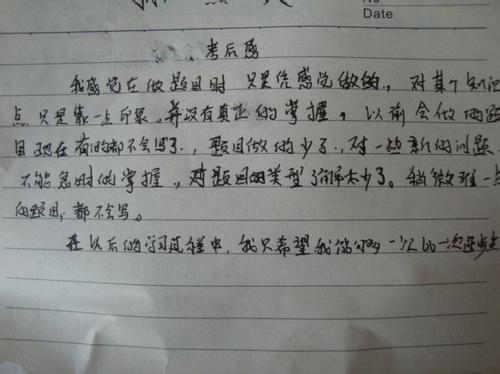 No
Date
考后感
我感觉在做题目时只是凭感觉做的,对某个知识
点只是靠一点印象,并没有真正的掌握,以前会做的题
目现在有的都不会写了,题目做的少了,对一些新的问题
不能及时的掌握,对题目的类型了解太少了。稍微难一点
的题目,都不会写。
在以后的学习过程中,我只希望我能够一次比一次进步